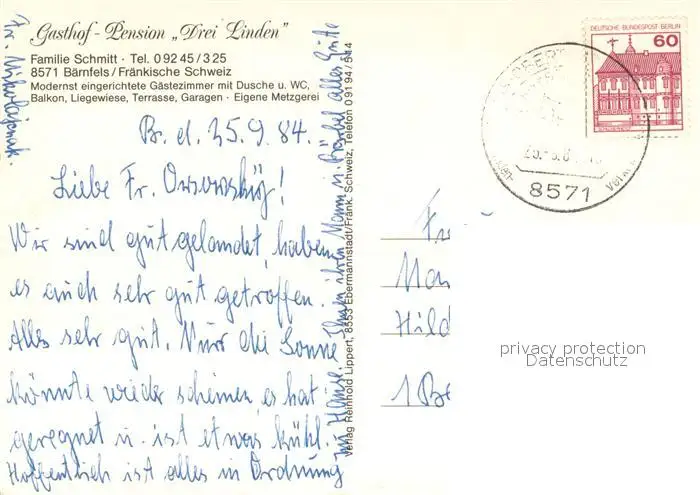 Gasthof - Pension „Drei Linden"
Familie Schmitt · Tel. 0 92 45 / 3 25
8571 Bärnfels / Fränkische Schweiz
Modernst eingerichtete Gästezimmer mit Dusche u. WC,
Balkon, Liegewiese, Terrasse, Garagen · Eigene Metzgerei
B. d. 25.9.84.
Liebe Fr.
Wir sind gut gelandet, haben
es auch sehr gut getroffen.
Alles sehr gut. Nur die Sonne
könnte wieder scheinen, es hat
geregnet u. ist etwas kühl.
Hoffentlich ist alles in Ordnung
zu Hause. Ihnen ihren Mann u. Bärbel alles Gute
Fr.
Verlag Reinhold Lippert, 8553 Ebermannstadt/Fränk. Schweiz, Telefon 0 91 94 / 5 44
DEUTSCHE BUNDESPOST BERLIN
60
8571
Fr
Hild
1 Be
privacy protection
Datenschutz